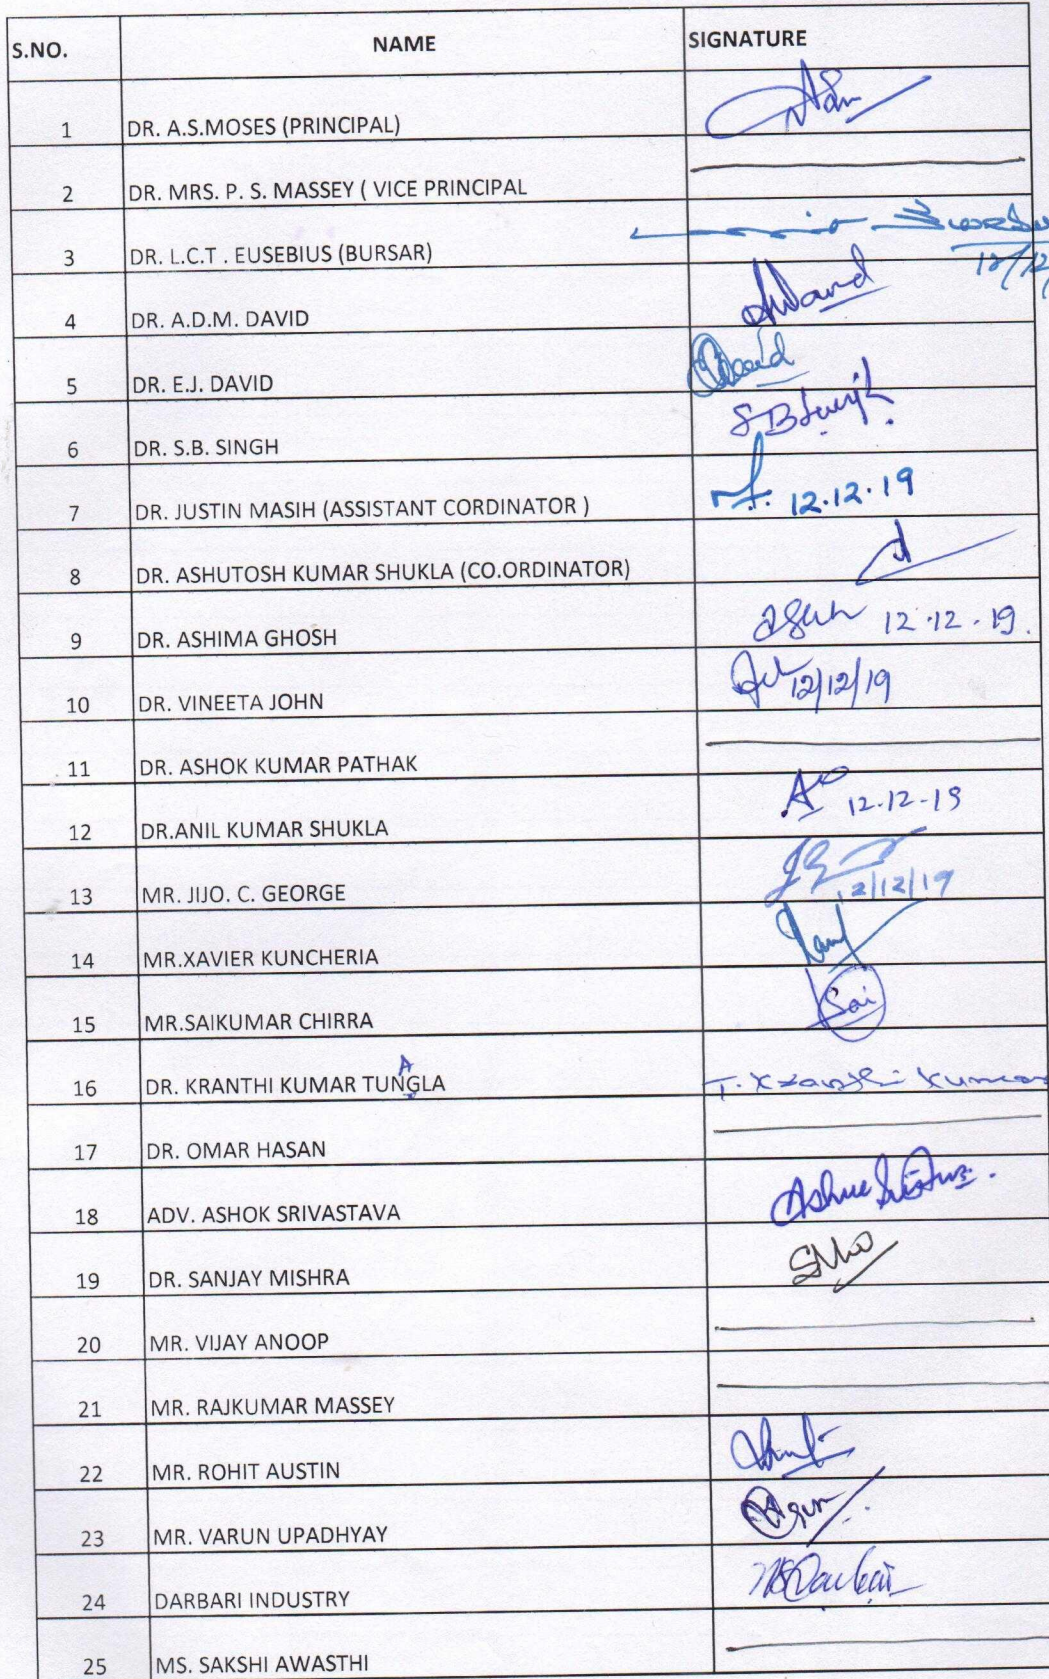 S.NO. NAME SIGNATURE
1 DR. A.S.MOSES (PRINCIPAL)
2 DR. MRS. P. S. MASSEY ( VICE PRINCIPAL
3 DR. L.C.T . EUSEBIUS (BURSAR)
4 DR. A.D.M. DAVID
5 DR. E.J. DAVID
6 DR. S.B. SINGH S B Singh
7 DR. JUSTIN MASIH (ASSISTANT CORDINATOR ) 12.12.19
8 DR. ASHUTOSH KUMAR SHUKLA (CO.ORDINATOR)
9 DR. ASHIMA GHOSH 12.12.19.
10 DR. VINEETA JOHN 12/12/19
11 DR. ASHOK KUMAR PATHAK
12 DR.ANIL KUMAR SHUKLA 12-12-19
13 MR. JIJO. C. GEORGE 12/12/19
14 MR.XAVIER KUNCHERIA
15 MR.SAIKUMAR CHIRRA Sai
A
16 DR. KRANTHI KUMAR TUNGLA T. Kranthi Kumar
17 DR. OMAR HASAN
18 ADV. ASHOK SRIVASTAVA
19 DR. SANJAY MISHRA
20 MR. VIJAY ANOOP
21 MR. RAJKUMAR MASSEY
22 MR. ROHIT AUSTIN
23 MR. VARUN UPADHYAY
24 DARBARI INDUSTRY
25 MS. SAKSHI AWASTHI